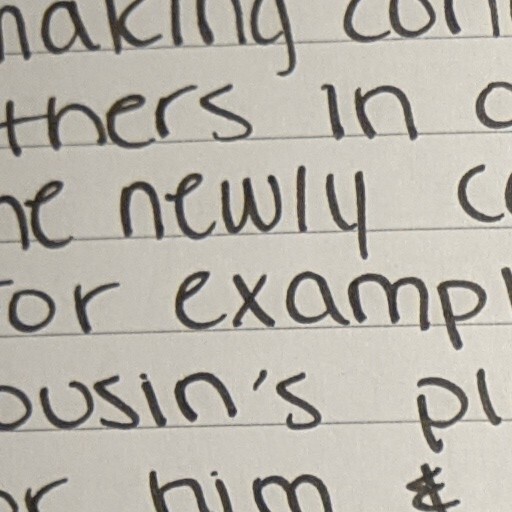 making com
thers in o
he newly c
for exampl
ousin's pl
or him &